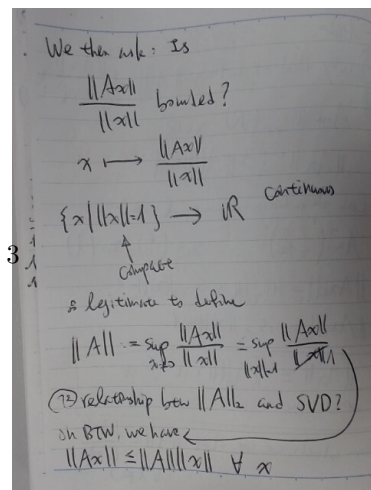 We then ask: Is
||Ax|| / ||x|| bounded?
x ⟼ ||Ax|| / ||x||
{x | ||x||=1} → ℝ continuous
↑
compact
3
legitimate to define
||A|| := sup_{x≠0} ||Ax|| / ||x|| = sup_{||x||=1} ||Ax|| / ||x|| 1
relationship btw ||A||₂ and SVD?
BTW, we have
||Ax|| ≤ ||A|| ||x|| ∀ x